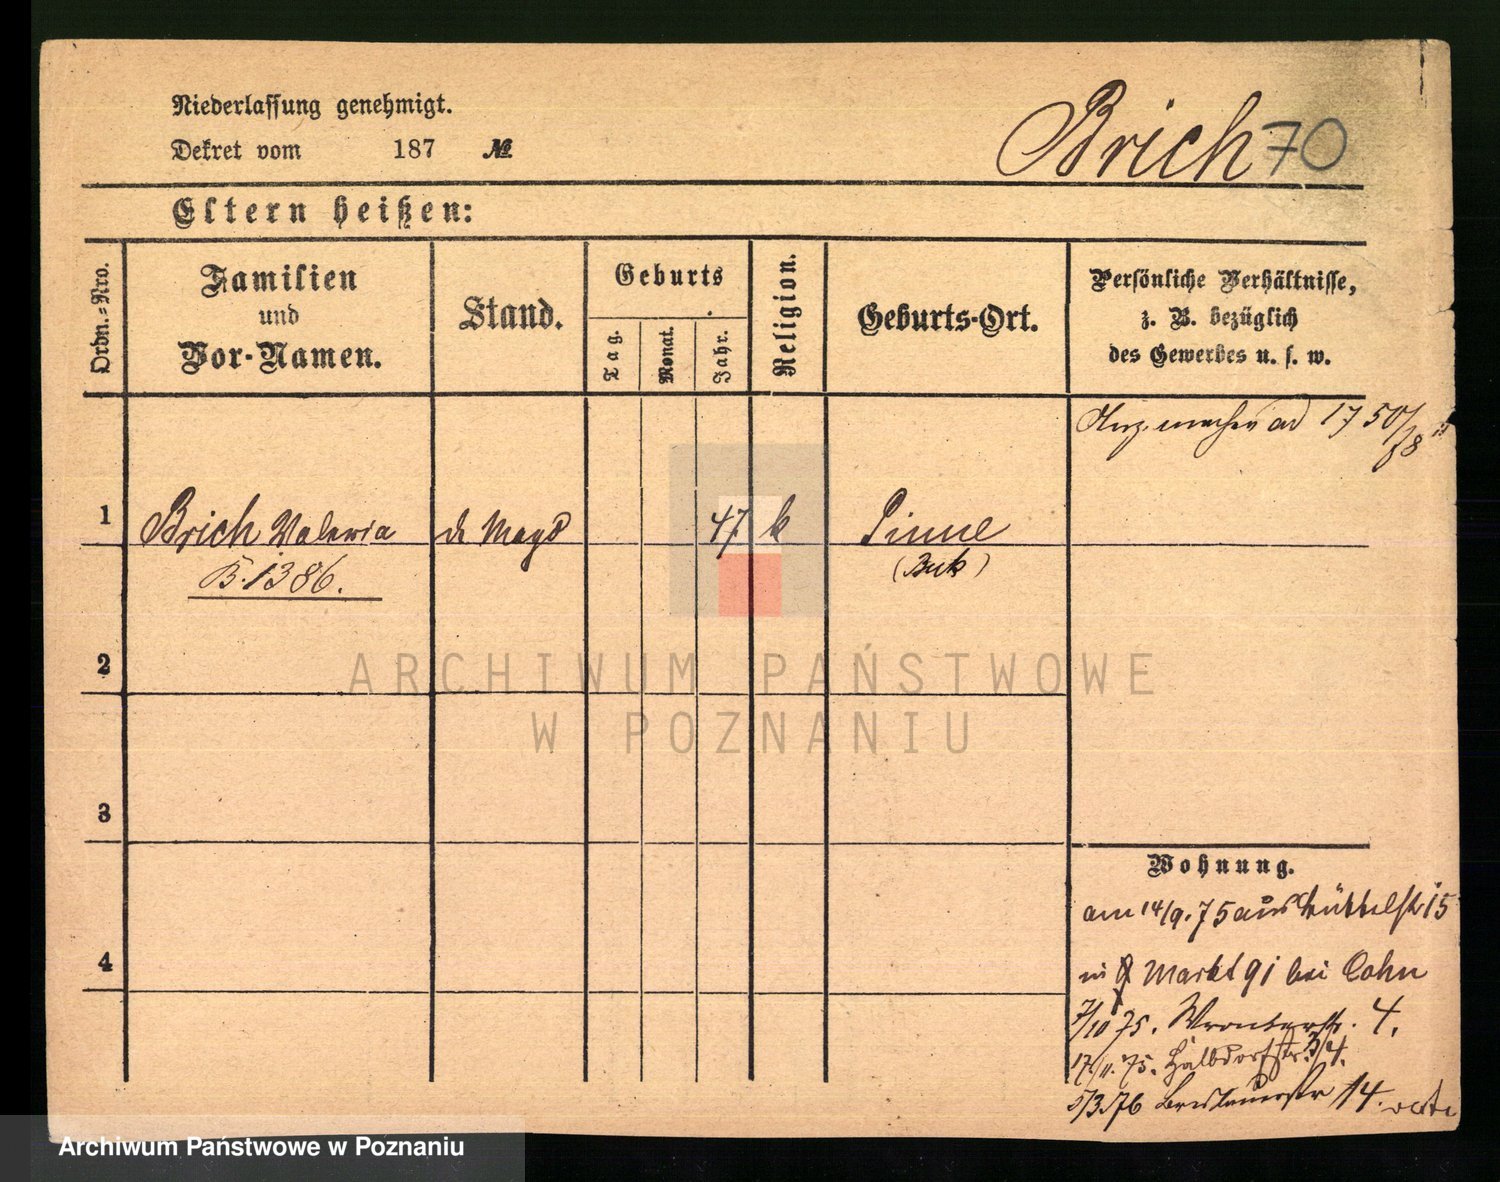 Niederlassung genehmigt.
Dekret vom 187 №
Brich 70
Eltern heißen:
Ordn.-Nro.
Familien
und
Vor-Namen.
Stand.
Geburts
Tag.
Monat.
Jahr.
Religion.
Geburts-Ort.
Persönliche Verhältnisse,
z. B. bezüglich
des Gewerbes u. s. w.
ad 17 50/78
1 Brich Valeria d. Magd 47 k Pinne
B. 1386. (Buk)
2
ARCHIWUM PAŃSTWOWE
W POZNANIU
3
4
Wohnung.
am 14/9. 75 aus Büttelstr 15
in Markt 91 bei Cohn
7/10 75. Wronkerstr. 4.
17/11. 75. Halbdorfstr. 3/4.
5/3 76 Breslauerstr 14.
Archiwum Państwowe w Poznaniu